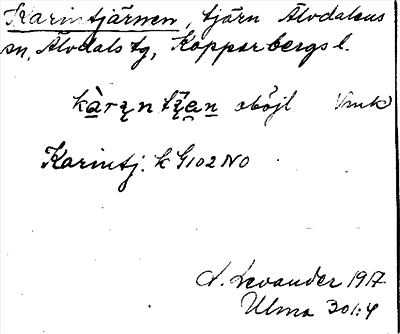 Karintjärnen, tjärn Älvdalens
sn, Älvdals tg, Kopparbergs l.
oböjl
Karintj. k G102 NO
L. Levander 1917
Ulma 301:4